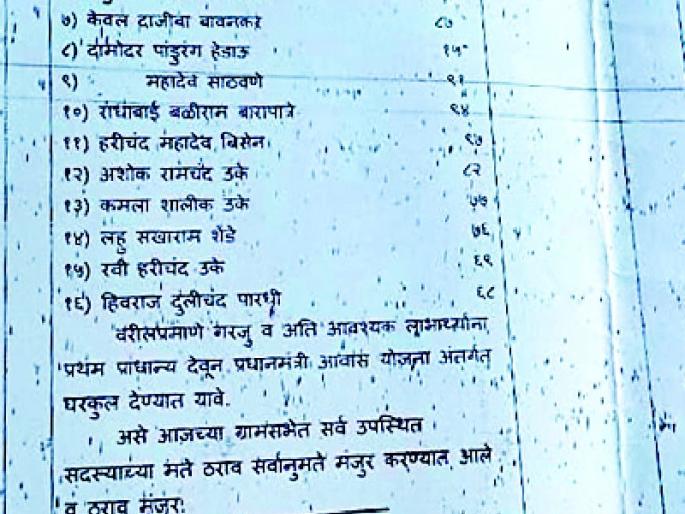 ७) केवल दाजीबा बावनकर ८७
८) दामोदर पांडुरंग हेडाऊ १५
९) महादेव साठवणे ९१
१०) राधाबाई बळीराम बारापात्रे ९४
११) हरीचंद महादेव बिसेन ९७
१२) अशोक रामचंद उके ८२
१३) कमला शालीक उके ७७
१४) लहु सखाराम शेंडे ७६
१५) रवी हरीचंद उके ६९
१६) हिवराज दुलीचंद पारधी ६८
वरीलप्रमाणे गरजु व अति आवश्यक लाभार्थ्यांना
प्रथम प्राधान्य देवून प्रधानमंत्री आवास योजना अंतर्गत
घरकुल देण्यात यावे.
असे आजच्या ग्रामसभेत सर्व उपस्थित
सदस्याच्या मते ठराव सर्वानुमते मंजुर करण्यात आले
व ठराव मंजुर